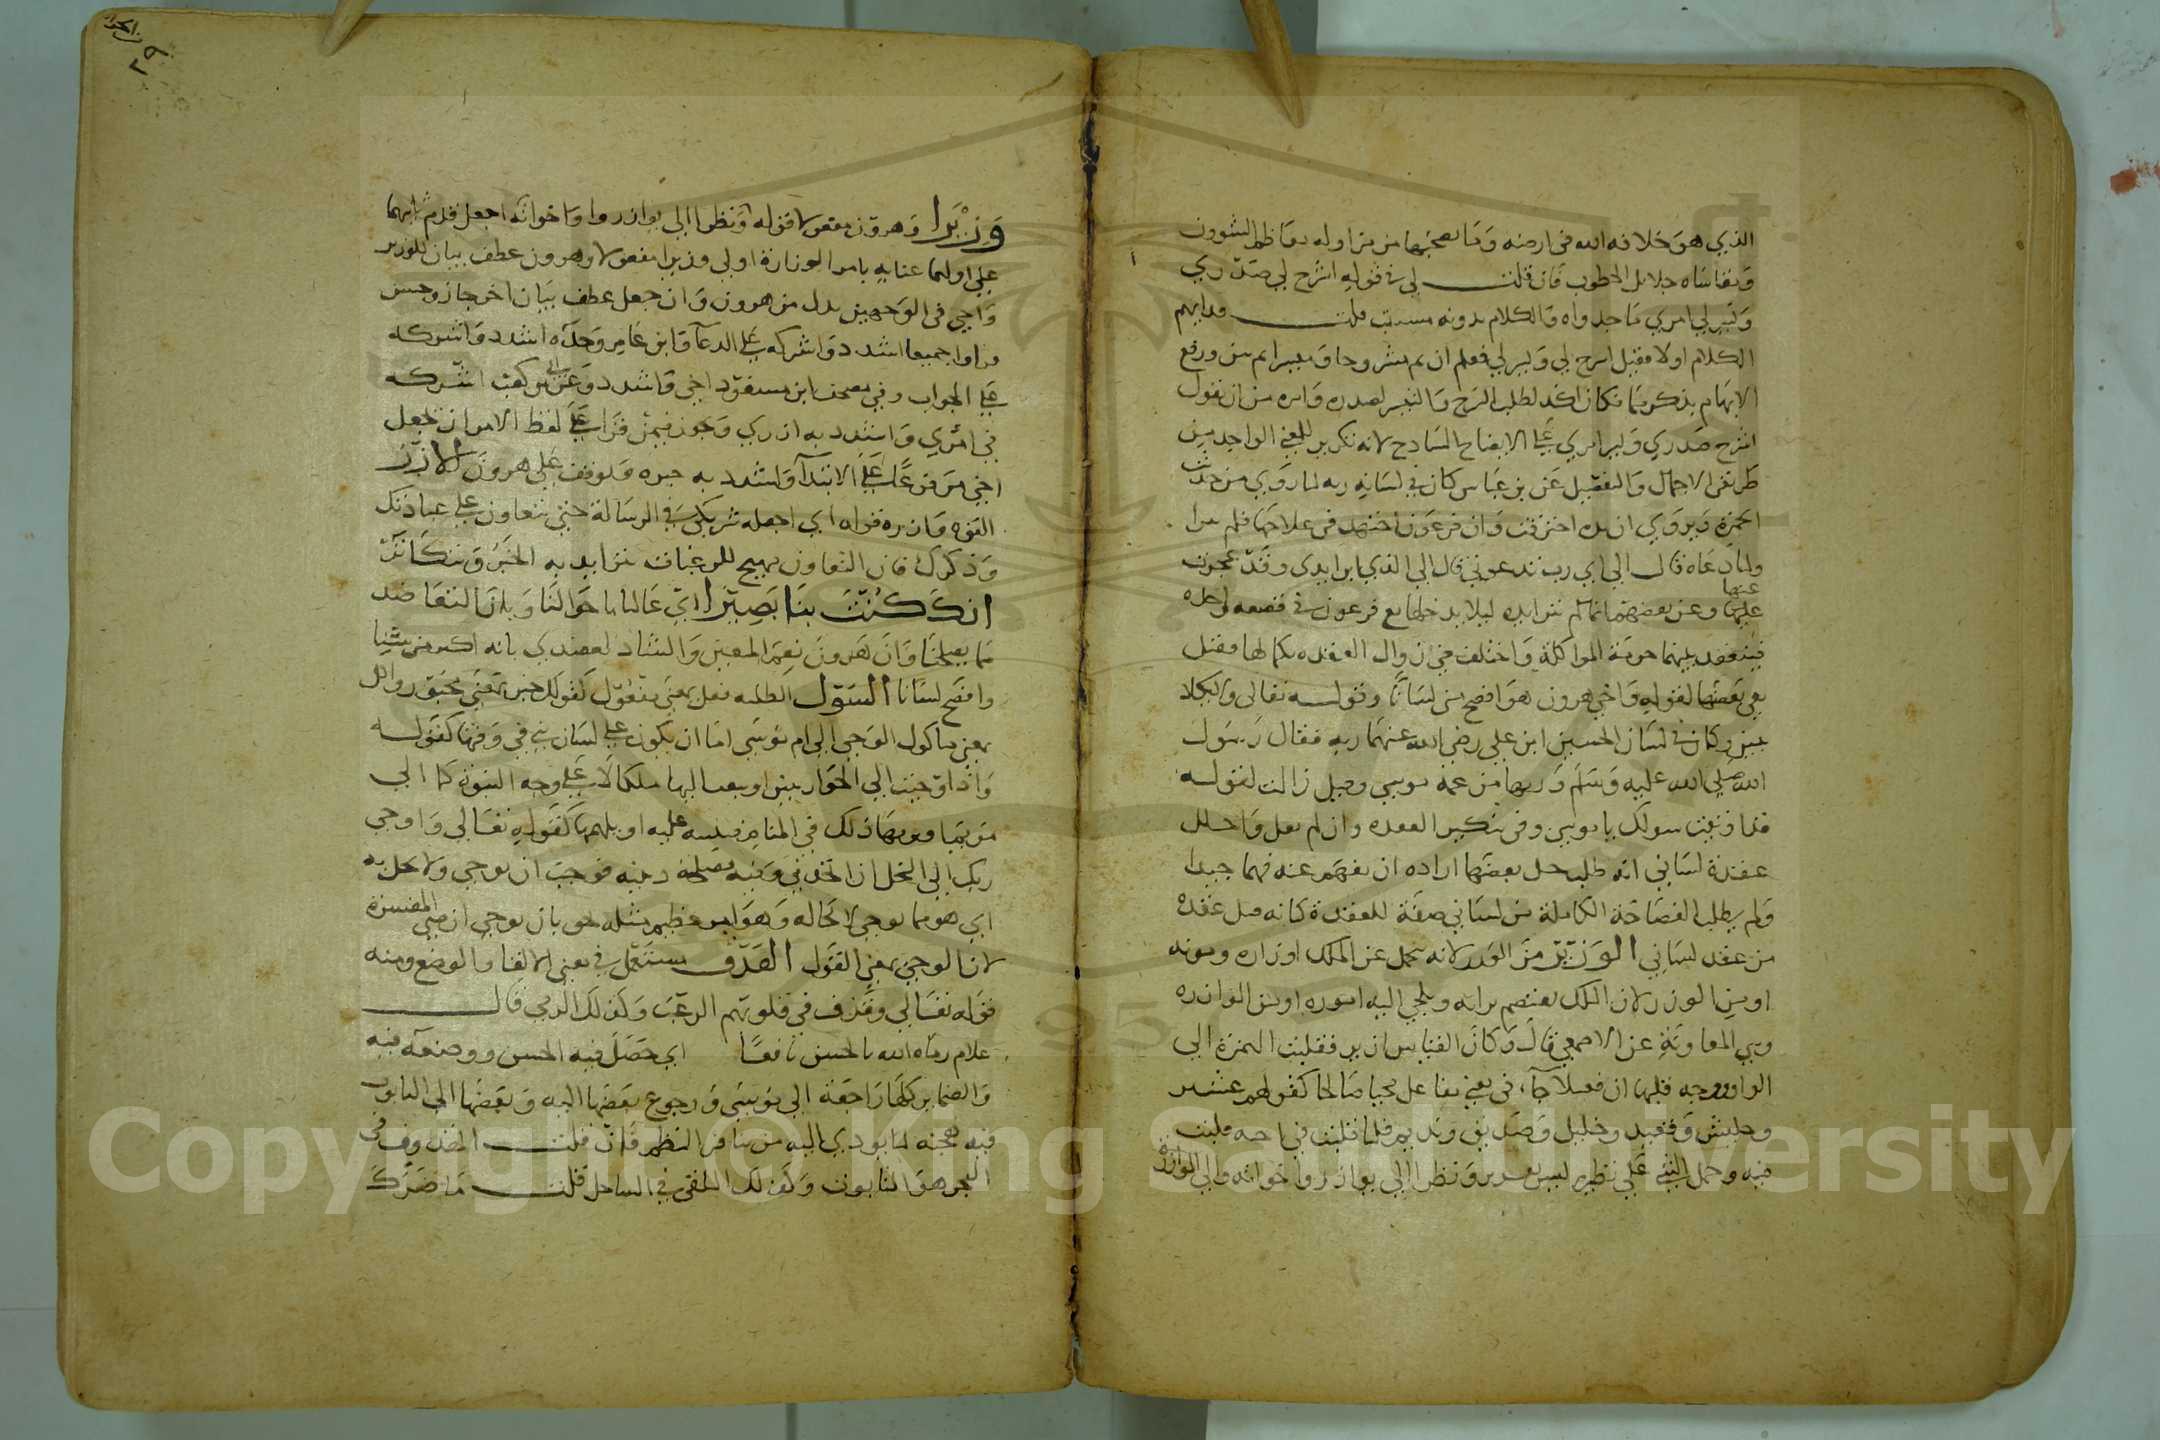 الذي هو خلافه الله في ارضه وما يصحبها من مزاوله معاظم الشوون
ومقاساه جلائل الخطوب فان قلت لي في قوله اشرح لي صدري
ويسر لي امري ما جدواه والكلام بدونه مستتب قلت قد ابهم
الكلام اولا فقيل اشرح لي ويسر لي فعلم ان ثم مشروحا وميسرا ثم بين ورفع
الابهام بذكرهما فكان اكد لطلب الشرح والتيسير لصدره وامره من ان نقول
اشرح صدري ويسر امري علي الايضاح الساذج لانه تكرير للمعني الواحد من
طريقي الاجمال والتفصيل عن بن عباس كان في لسانه رته لما روي من حديث
الجمرة ويروي ان يده احترقت وان فرعون اجتهد في علاجها فلم تبرا
ولما دعاه قال الي اي رب تدعوني قال الي الذي ابرا يدي وقد عجزت
عنها
عليها وعن بعضهم انما لم تبرا يده ليلا يدخلها مع فرعون في قصعه واحده
فينعقد بينهما حرمة المواكلة واختلف في زوال العقده بكمالها فقيل
بقي بعضها لقوله واخي هرون هو افصح مني لسانا وقوله تعالى ولا يكاد
يبين وكان في لسان الحسين ابن علي رضي الله عنهما رته فقال رسول
الله صلي الله عليه وسلم ورثها من عمه موسي وقيل زالت لقوله
قد اوتيت سولك يا موسي وفي تنكير العقده وان لم يقل واحلل
عقدة لساني انه طلب حل بعضها اراده ان يفهم عنه فهما جيدا
ولم يطلب الفصاحة الكاملة من لساني صفة للعقدة كانه قيل عقدة
من عقد لساني الوزير من الوزر لانه يتحمل عن الملك اوزاره ومونه
او من الوزر لان الملك يعتصم برايه ويلجي اليه اموره او من الموازره
وهي المعاونة عن الاصمعي قال وكان القياس ازير فقلبت الهمزة الي
الواو ووجه قلبها ان فعيلا جآ في معني مفاعل مجيا صالحا كقولهم عشير
وجليس وقعيد وخليل وصديق ونديم فلما قلبت في اخيه قلبت
فيه وحمل الشي علي نظيره ليس بعزيز ونظرا الي يوازر واخواته والي الموازرة
وزيرا وهرون مفعولا قوله ونظرا الي يوازر واخواته اجعل قدم ثانيهما
علي اولهما عناية بامر الوزارة او لي وزيرا مفعولا وهرون عطف بيان للوزير
واخي في الوجهين بدل من هرون وان جعل عطف بيان اخر جاز وحسن
قراوا جميعا اشدد واشركه علي الدعآ وابن عامر وحده اشدد واشركه
علي الجواب وفي مصحف ابن مسعود اخي واشدد وعن ابي بن كعب اشركه
في امري واشدد به ازري ويجوز فيمن قرا علي لفظ الامر ان تجعل
اخي مرفوعا علي الابتدآ واشدد به خبره ويوقف علي هرون الازر
القوه وازره قواه اي اجعله شريكي في الرسالة حتي نتعاون علي عبادتك
وذكرك فان التعاون مهيج للرغبات يتزايد به الخير ويتكاثر
انك كنت بنا بصيرا اي عالما باحوالنا وبان التعاضد
مما يصلحنا وان هرون نعم المعين والشاد لعضدي بانه اكبر مني سنا
وافصح لسانا السول الطلبه فعل بمعني مفعول كقولك خبز بمعني مخبوز واكل
بمعني ماكول الوحي الي ام موسي اما ان يكون علي لسان نبي في وقتها كقوله
واذ اوحيت الي الحواريين او يبعث اليها ملكا لا علي وجه النبوة كما الي
مريم او يريها ذلك في المنام فتتنبه عليه او يلهمها كقوله تعالى واوحي
ربك الي النحل ان اتخذي وفيه مصلحة دينه فوجب ان يوحي ولا يخل به
اي هو مما يوحي لا محاله وهو امر عظيم مثله يحق بان يوحي ان هي المفسرة
لان الوحي بمعني القول القذف يستعمل في معني الالقا والوضع ومنه
قوله تعالي وقذف في قلوبهم الرعب وكذلك الرمي قال
غلام رماه الله بالحسن يافعا اي حصل فيه الحسن ووضعه فيه
والضماير كلها راجعة الي موسي ورجوع بعضها اليه وبعضها الي التابوت
فيه هجنه لما يودي اليه من تنافر النظم فان قلت المقذوف في
البحر هو التابوت وكذلك الملقي في الساحل قلت ما ضرك